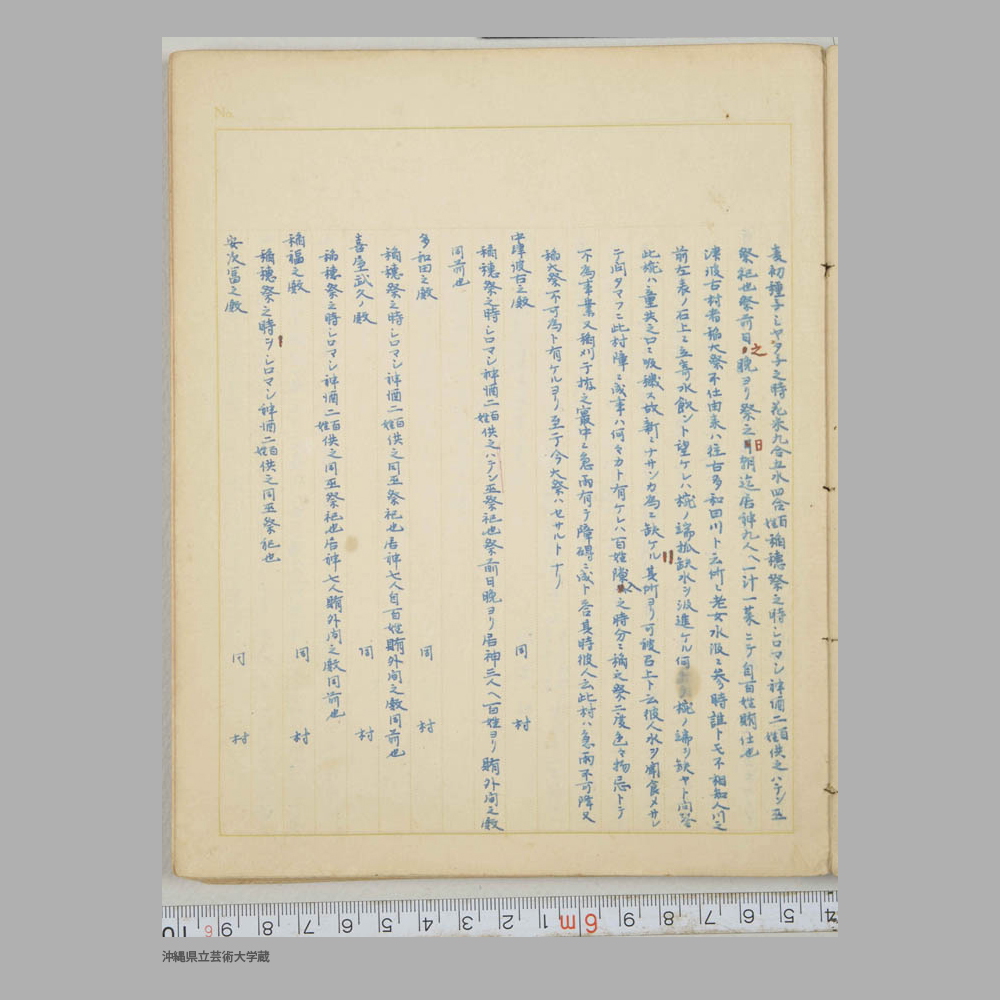 麦初種子ミヤタ子之時花米九合五水四合百姓稲穂祭之時シロマシ神酒二百姓供之ハテシ巫
祭祀也祭前日之晩ヨリ祭之日朝迄居神九人ヘ一汁一菜ニテ自百姓賄仕也
津波古村者稲大祭不仕由来ハ往古多和田川ト云所ニ老女水汲ニ参時誰トモ不相知人川之
前左表ノ石上ニ立寄水飲ント望ケレハ椀ノ端抓缺水ヲ汲進ケル何 椀ノ端ヲ缺ヤト問答
此椀ハ童共之口ニ吸穢ス故新ニナサンカ為ニ缺ケル其所ヨリ可被召上ト云彼人水ヲ聞食メサレ
テ問タマフニ此村障ニ成事ハ何々カト有ケレハ百姓隙入之時分ニ稲之祭二度色々物忌トテ
不為事業又稲刈テ椿之最中ニ急雨有テ障碍ニ成ト答其時彼人云此村ハ急雨不可降又
稲大祭不可為ト有ケルヨリ至于今大祭ハセサルトナリ
中津波古之殿 同 村
稲穂祭之時シロマシ神酒二百姓供之ハテシ巫祭祀也祭前日晩ヨリ居神三人ヘ百姓ヨリ賄外間之殿
同前也
多和田之殿 同 村
稲穂祭之時シロマシ神酒二百姓供之同巫祭祀也居神七人自百姓賄外間之殿同前也
喜屋武久ノ殿 同 村
稲穂祭之時シロマシ神酒二百姓供之同巫祭祀也居神七人賄外間之殿同前也
稲福之殿 同 村
稲穂祭之時ヲシロマシ神酒二百姓供之同巫祭祀也
安次富之殿 同 村
No.
10 9 8 7 6 5 4 3 2 1 6m 9 8 7 6 5 4
沖縄県立芸術大学蔵